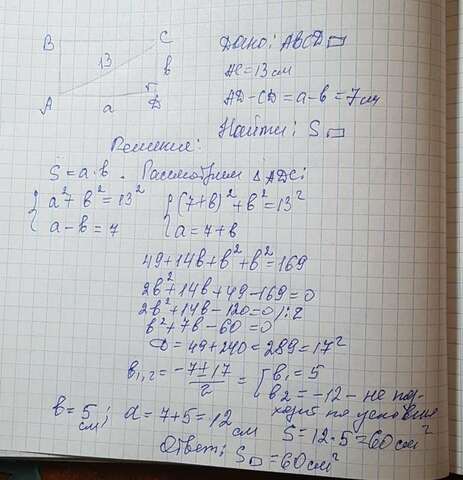 B C
13 в
A а D
Дано: ABCD▭
AC=13 см
AD-CD=а-в=7см
Найти: S▭
Решение:
S=а·в. Рассмотрим △ADC:
{а²+в²=13² {(7+в)²+в²=13²
{а-в=7 {а=7+в
49+14в+в²+в²=169
2в²+14в+49-169=0
2в²+14в-120=0/:2
в²+7в-60=0
D=49+240=289=17²
в₁,₂=(-7±17)/2={в₁=5
в₂=-12-не под-
ходит по условию
в=5 см; а=7+5=12 см S=12·5=60см²
Ответ: S▭=60см²